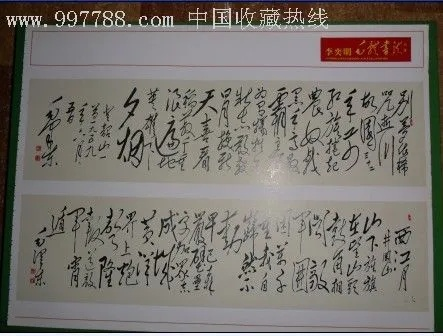 www.997788.com 中国收藏热线
毛体书法
别梦依稀
咒逝川
故園三十二
年前
红旗卷起
農奴戟
黑手高悬
霸主鞭
为有牺牲
多壮志敢教
日月换新
天喜看
稻菽千重
浪遍地
英雄下
夕烟
毛泽东
西江月
井岡山
山下旌旗
在望山头
鼓角相
闻敌军
围困万千
重我自
岿然不
动
早已森
严壁垒
更加众志
成城
黄洋
界上炮
声隆
报道敌
军宵
遁
毛泽东